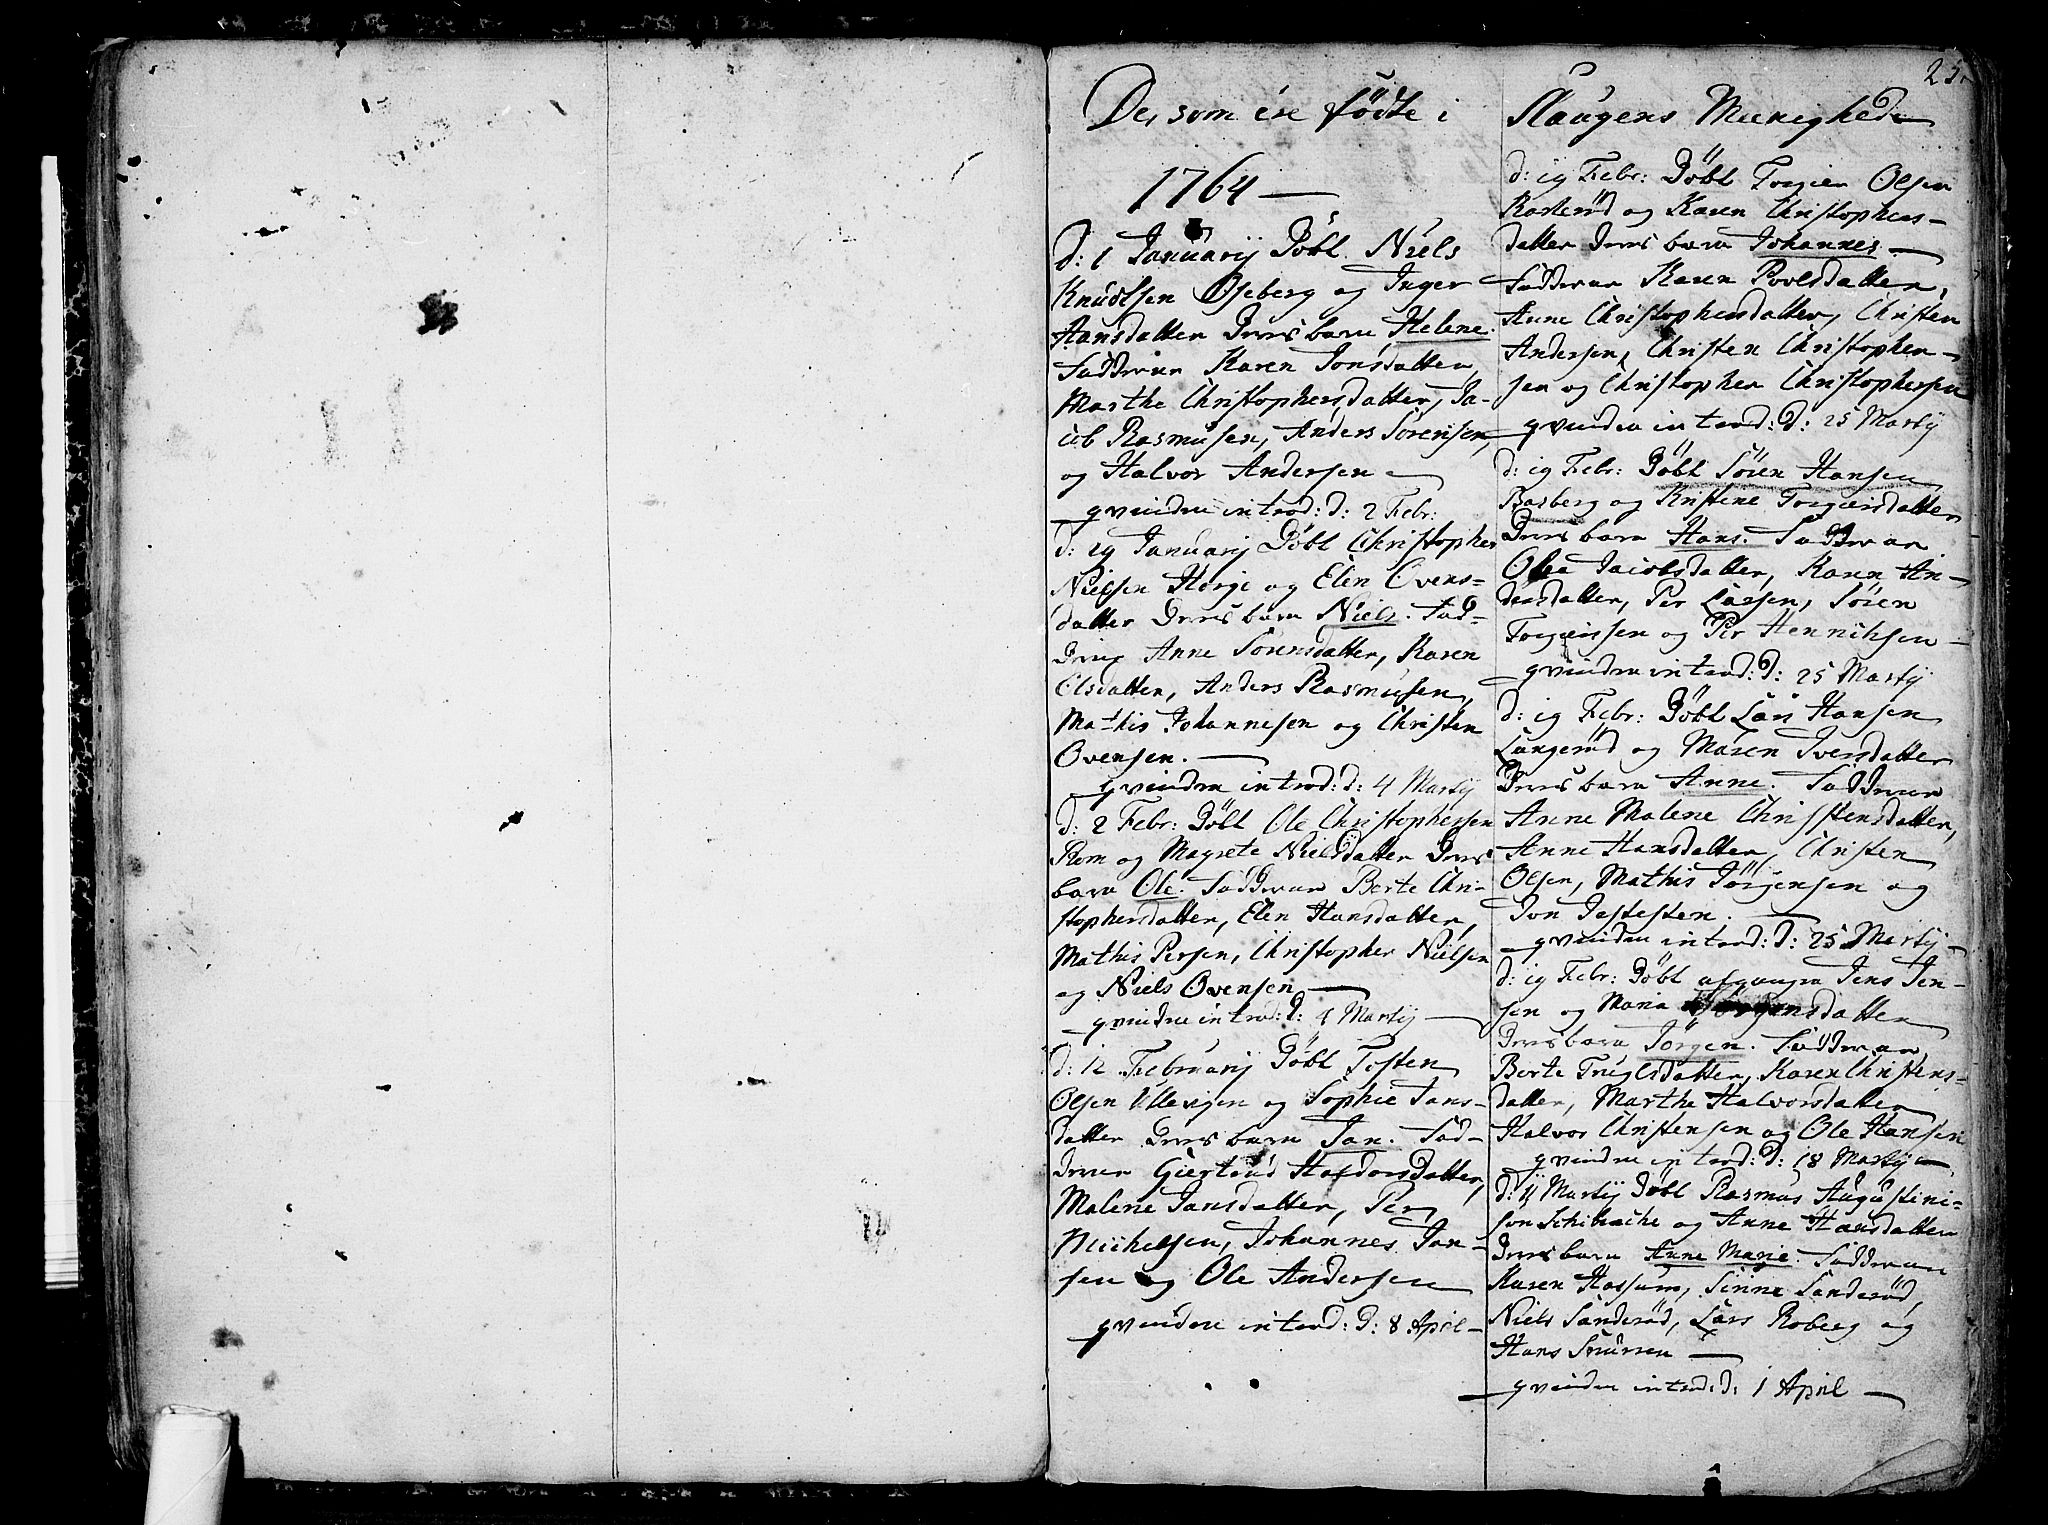 25.
De, som ere födte i Slaugens Meenighed
1764
d: 1 Januarij Döbt Niels
Knudtsen Oseberg og Inger
Hansdatter Deres barn Helene.
Fadderne Karen Jonsdatter,
Marthe Christophersdatter, Ja-
cob Rasmusen, Anders Sörensen,
og Halvor Andersen
qvinden introd: d: 2 Febr:
d: 19 Januarij Döbt Christopher
Nielsen Horge og Elen Ovens-
datter Deres barn Niels. Fad-
derne Anne Sörensdatter, Karen
Olsdatter, Anders Rasmusen,
Mathis Johannesen og Christen
Ovensen.
qvinden introd: d: 4 Martij
d: 2 Febr: Döbt Ole Christophersen
Rom og Magrete Nielsdatter Deres
barn Ole. Fadderne Berte Chri-
stophersdatter, Elen Hansdatter,
Mathis Persen, Christopher Nielsen
og Niels Ovensen
qvinden introd: d: 4 Martij
d: 12 Februarij Döbt Tosten
Olsen Ullevigen og Sophie Jans-
datter Deres barn Jan. Fad-
derne Giertrud Halvorsdatter,
Malene Jansdatter, Per
Michelsen, Johannes Jan-
sen og Ole Andersen
qvinden introd: d: 8 April
d: 19 Febr: Döbt Torgier Olsen
Rosteröd og Karen Christophers-
datter Deres barn Johannes.
Fadderne Karen Povlsdatter,
Anne Christophersdatter, Christen
Andersen, Christen Christopher-
sen og Christopher Christophersen
qvinden introd: d: 25 Martij
d: 19 Febr: Döbt Sören Hansen
Basberg og Kristene Torgiersdatter
Deres barn Hans. Fadderne
Olea Jacobsdatter, Karen An-
dersdatter, Per Larsen, Sören
Torgierssen og Per Hennichsen
qvinden introd: d: 25 Martij
d: 19 Febr: Döbt Lars Hansen
Langeröd og Maren Iversdatter
Deres barn Anne. Fadderne
Anne Malene Christensdatter,
Anne Hansdatter, Christen
Olsen, Mathis Jörgensen og
Jon Jostesten.
qvinden introd: d: 25 Martij
d: 19 Febr: Döbt afgangne Jens Jen-
sen og Maria Jörgensdatter
Deres barn Jörgen. Fadderne
Berte Truglsdatter, Karen Christens-
datter, Marthe Halvorsdatter
Halvor Christensen og Ole Hansen
qvinden introd: d: 18 Martij
d: 4 Martij Döbt Rasmus Augustini-
son Schibache og Anne Hansdatter
Deres barn Anne Marie. Fadderne
Karen Hassum, Sinne Sanderöd,
Niels Sanderöd, Lars Roberg og
Hans
qvinden introd: d: 1 April